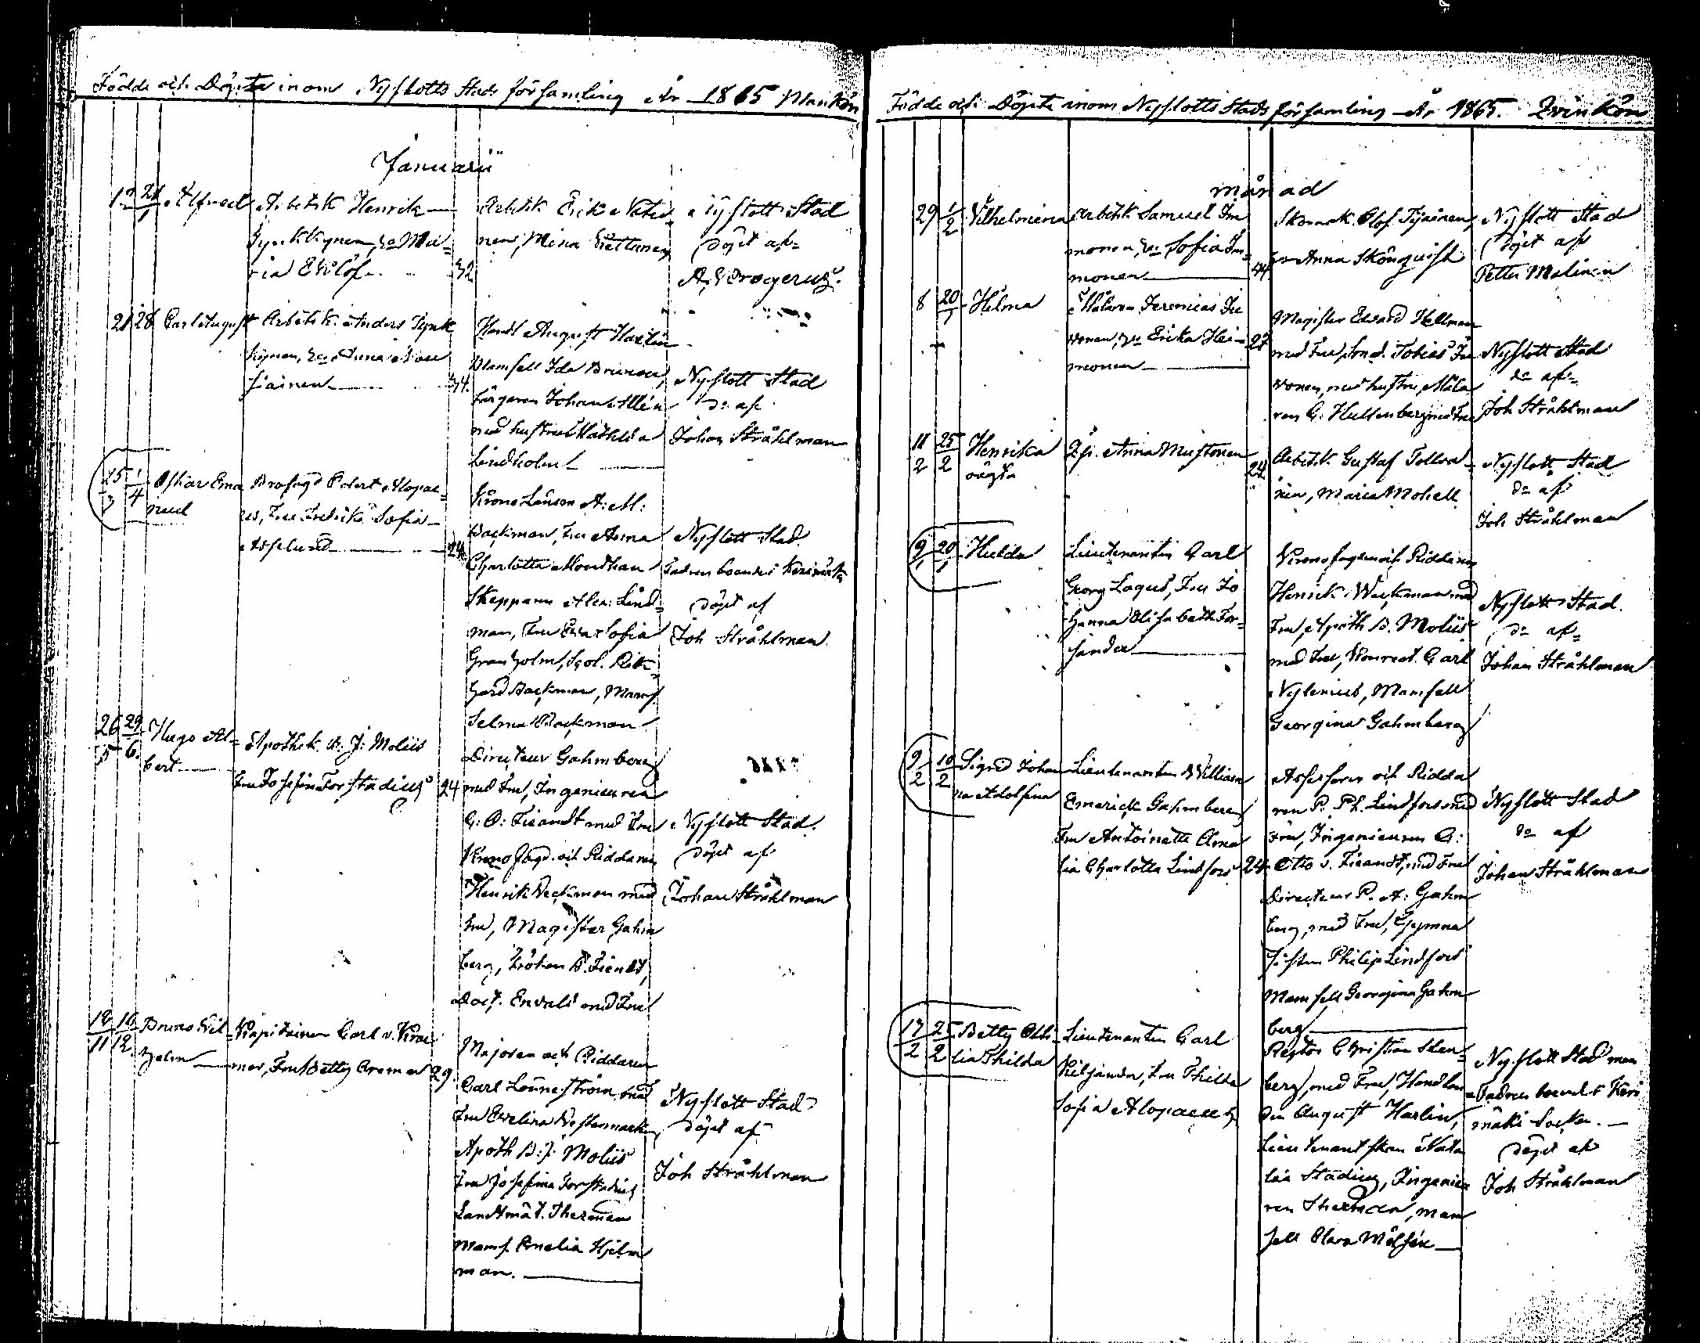 Födde och Döpte inom Nyslotts Stads församling År 1865 Mankön
Januarii
12 21/1 Alfred Arbetsk Henrik
Tynkkynen, h:o Ma-
ria Eklöf 32
Arbetsk Erik
nen, Mina
Nyslott Stad
döpt af
A. Brogerus
21 28 Carl August Arbetsk. Anders Tynk
kynen, h:o Anna
jäinen 34
Handl August Harlin
Mamsell Ida Brunou,
färgaren Johan Allén
med hustru Mathilda
Lindholm
Nyslott Stad
d:o af
Johan Stråhlman
25/3 1/4 Oskar Ema
nuel
Brofogd Robert Alopae-
us, Fru Fredrika Sofia
Asplund 24
Krono Länsm A: M:
Backman, Fru Anna
Charlotta
Skepparen Alex: Lind-
man, Fru Eva Sofia
Granholm, Scol. Rik-
hard Backman, Mams
Selma Backman
Nyslott Stad
Fadren boende i Kerimäki
döpt af
Joh Stråhlman
26/5 29/6 Hugo Al-
bert
Apothek. B. J. Moliis
Fru Josefina Forstadius 24
Directeur Gahmberg
med Fru, Ingenieuren
C: O: Fieandt med Fru
Kronofogd. och Riddaren
Henrik Weckman med
Fru, Magister Gahm
berg, Fröken B. Fieandt,
Doct. Envald med Fru
Nyslott Stad.
döpt af
Johan Stråhlman
18/11 16/12 Bruno Vil-
helm
Kapitainen Carl v. Kræ
mer, Fru Betty Areman 29
Majoren och Riddaren
Carl Lönneström, med
Fru Evelina Westermarck,
Apoth B: J: Moliis
Fru Josefina Forstadius
Landtmät. Therman
Mams. Amalia Hjelm
man.
Nyslott Stad
döpt af
Joh Stråhlman
Födde och Döpte inom Nyslotts Stads församling År 1865. Qvinkön
månad
29 1/2 Vilhelmina Arbetsk Samuel Im
monen h:o Sofia Im-
monen 44
Skomak. Olof Tijainen,
Anna Skönqvist
Nyslott Stad
döpt af
Petter Malinin
8 20/1 Helma
Målaren Jeremias Iu
vonen, h:o Erika Hei-
monen 27
Magister Edvard Hellman
med Fru, Tobias Iu
vonen, med hustru, Måla
ren G. Hultenberg med Fru
Nyslott Stad
d:o af
Joh Stråhlman
11/2 25/2 Henrika
oägta
Pig. Anna Mustonen 24
Arbetsk. Gustaf Tolva-
nen, Maria Mohell
Nyslott Stad
d:o af
Joh Stråhlman
9/1 20/1 Hulda
Lieutenanten Carl
Georg Lagus, Fru Jo
hanna Elisabeth For-
sander
Kronofogden och Riddaren
Henrik Weckman med
Fru, Apoth B. Moliis
med Fru, Conrect. Carl
Nylenius, Mamsell
Georgina Gahmberg
Nyslott Stad.
d:o af
Johan Stråhlman
9/2 19/2 Sigrid Johan
na Adolfina
Lieutenanten William
Emerick Gahmberg
Fru Antoinette Ama
lia Charlotta Lindfors 24
Assessoren och Ridda
ren P. Ph. Lindfors med
Fru, Ingenieuren C:
Otto v. Fieandt, med Fru
Directeur P. A: Gahm
berg, med Fru, Gymna
sisten Philip Lindfors
Mamsell Georgina Gahm
berg
Nyslott Stad
d:o af
Johan Stråhlman
17/2 25/2 Betty Otti
lia Thilda
Lieutenanten Carl
Kiljander, Fru Thilda
Sofia Alopaeus
Rector Christian Sten-
berg, med Fru, Handlan
den August Harlin,
Lieutenantskan Nata
lia Stadius, Ingenieu
ren Therman, mam
sell Clara Wålsén
Nyslott Stad men
Fadren boende i Keri
mäki Socken.
döpt af
Joh Stråhlman